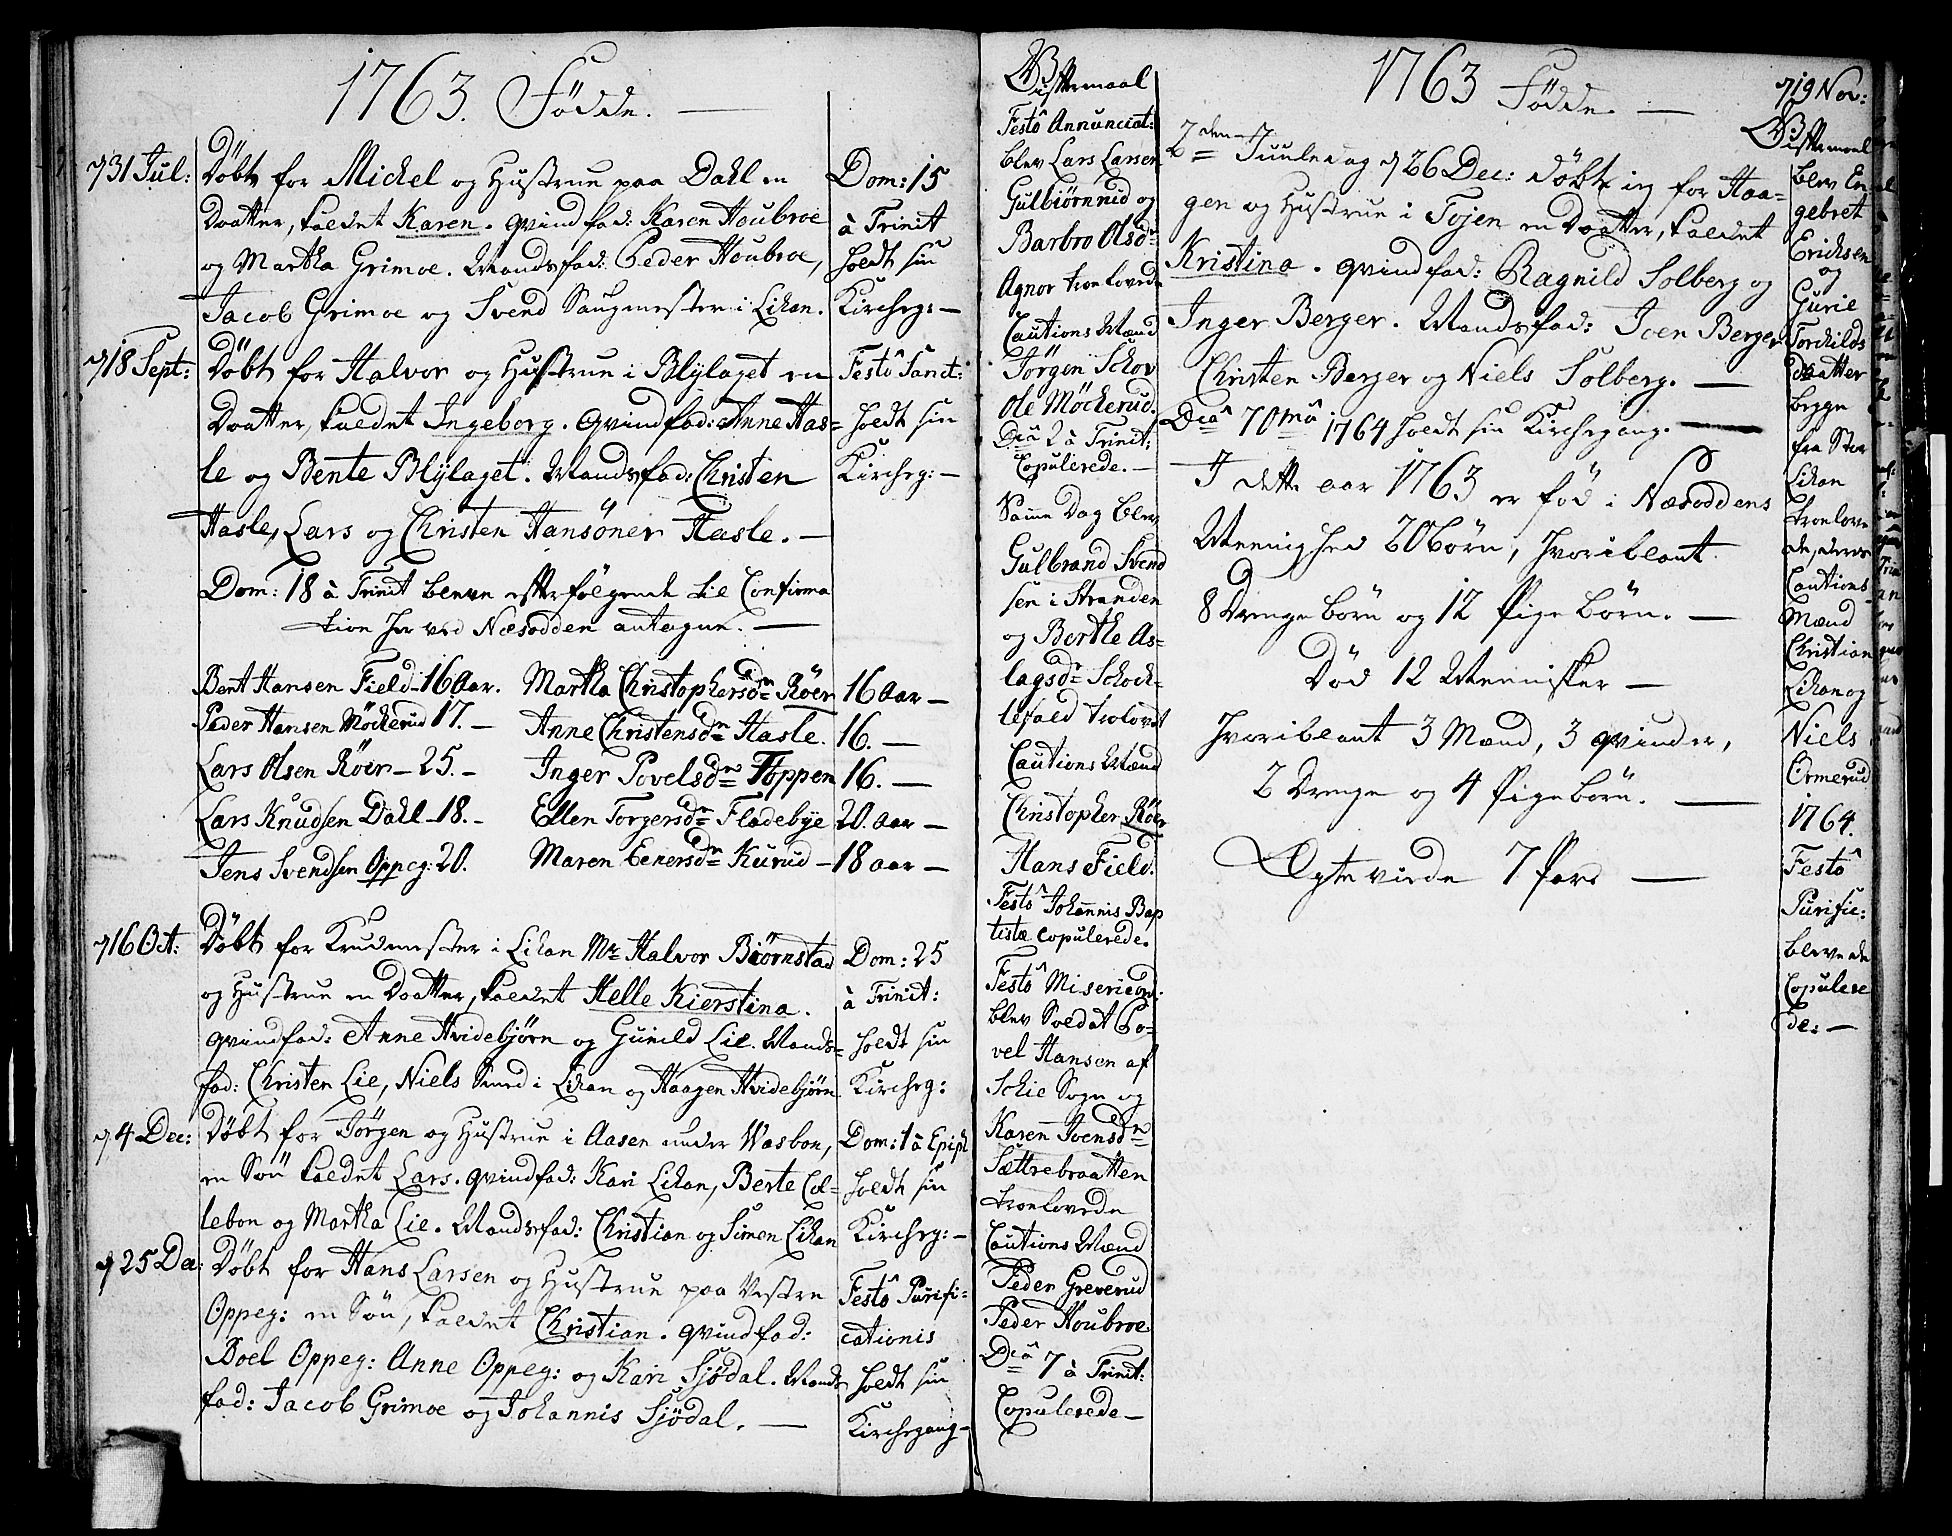 1763. Födde.
d 31 Jul:
Döbt for Mickel og Hustrue paa Dahl en
Daatter, kaldet Karen. Qvindfad: Karen Houbroe
og Martha Grimoe. Mandsfad: Peder Houbroe,
Jacob Grimoe og Svend Saugmester i Likan.
Dom: 15
à Trinit
holdt sin
Kircheg: —
d 18 Sept:
Döbt for Halvor og Hustrue i Blÿlaget en
Daatter, kaldet Ingeborg. Qvindfad: Anne Has=
le og Bente Blÿlaget. Mandsfad: Christen
Hasle, Lars og Christen Hansöner Hasle. —
Festô Sanct:
holdt sin
Kircheg: —
Dom: 18 à Trinit bleve efterfölgende til Confirma
tion her ved Næsodden antagne. —
Bent Hansen Field - 16 Aar.
Peder Hansen Möckerud 17. —
Lars Olsen Röer - 25. -
Lars Knudsen Dahl - 18. -
Jens Svendsen Oppeg: 20.
Martha Christophersdn Röer 16 Aar —
Anne Christensdn Hasle. 16. —
Inger Povelsdn Toppen 16. —
Ellen Torgersdn Fladebye 20. Aar —
Maren Enersdn Kurud — 18 aar —
d 16 Oct:
Döbt for Krudmester i Likan Mr Halvor Biörnstad
og Hustrue en Daatter, kaldet Helle Kierstina.
Qvindfad: Anne Hvidebjörn og Gunild Lie. Mands=
fad: Christen Lie, Niels Smed i Likan og Haagen Hvidebjörn
Dom: 25
à Trinit:
holdt sin
Kircheg:
d 4 Dec:
Döbt for Jörgen og Hustrue i Aasen under Wasbon,
en Sön kaldet Lars. Qvindfad: Kari Likan, Berte Col=
lebon og Martha Lie. Mandsfad: Christian og Simen Likan
Dom: 1 à Epiph
holdt sin
Kircheg: —
d 25 Dec:
Döbt for Hans Larsen og Hustrue paa Vestre
Oppeg: en Sön, kaldet Christian. Qvindfad:
Boel Oppeg: Anne Oppeg: og Kari Sjödal. Mands
fad: Jacob Grimoe og Johannis Sjödal. —
Festô Purifi=
cationis
holdt sin
Kirchegang —
Giftermaal
Festô Annunciat:
blev Lars Larsen
Gulbiörnrud og
Barbro Olsdr
Agnor troelovede
Cautions Mænd
Jörgen Schov
Ole Möckerud.
Dcâ 2 à Trinit:
Copulerede. —
Samme Dag blev
Gulbrand Svend
sen i Stranden
og Berthe As-
lagsdr Schock-
lefald trolovet
Cautions Mænd
Christopher Röer
Hans Field.
Festô Johannis Bap
tistæ Copulerede.
Festô Misericord:
blev Soldat Po-
vel Hansen af
Schie Sogn og
Karen Joensdr
Sættrebraatten
troelovede
Cautions Mænd
Peder Greverud
Peder Houbroe.
Dcâ 7 à Trinit:
Copulerede —
1763 Födde. —
2den Juuledag d 26 Dec: döbt ieg for Haa=
gen og Hustrue i Tojen en Daatter, kaldet
Kristina. Qvindfad: Ragnild Solberg og
Inger Berger. Mandsfad: Joen Berger
Christen Berger og Niels Solberg. —
Dcâ 70mâ 1764 holdt sin Kirchegang. —
I dette aar 1763 er fød i Næsoddens
Menighed 20 börn, hvoriblant
8 Drenge börn og 12 Pige börn. —
Död 12 Mennisker —
hvoriblant 3 Mænd, 3 qvinder,
2 Drenge og 4 Pigebörn. —
Ægteviede 7 Par —
d 19 Nov:
Giftermaal
blev En
gebret
Ericksen
og
Gurie
Torchilds
daatter
begge
fra Stor
Likan
troelove
de, deres
Cautions
Mænd
Christian
Likan og
Niels
Ormerud
1764.
Festô
Purific:
bleve de
Copulere
de: —